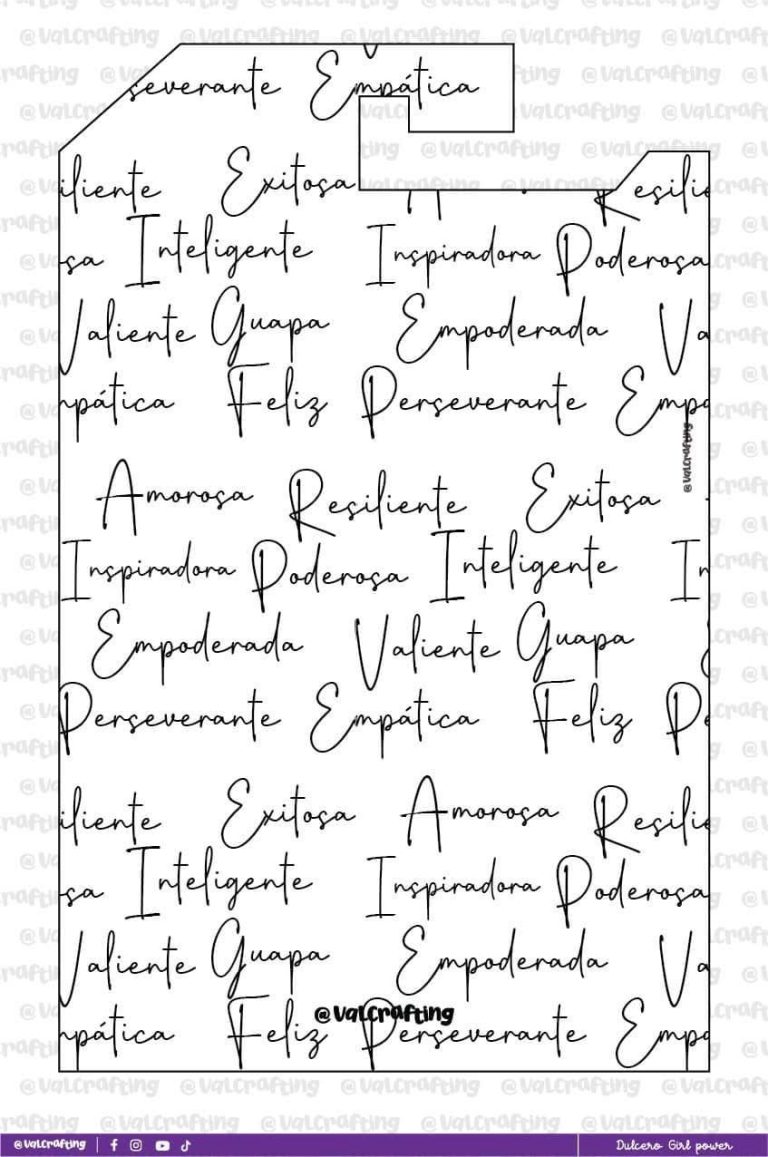 severante Empática
iliente Exitosa Resilie
sa Inteligente Inspiradora Poderosa
Valiente Guapa Empoderada Va
mpática Feliz Perseverante Empá
@valcrafting
Amorosa Resiliente Exitosa
Inspiradora Poderosa Inteligente In
Empoderada Valiente Guapa
Perseverante Empática Feliz Pe
iliente Exitosa Amorosa Resilie
sa Inteligente Inspiradora Poderosa
Valiente Guapa Empoderada Va
@valcrafting
mpática Feliz Perseverante Empá
@valcrafting Dulcero Girl power